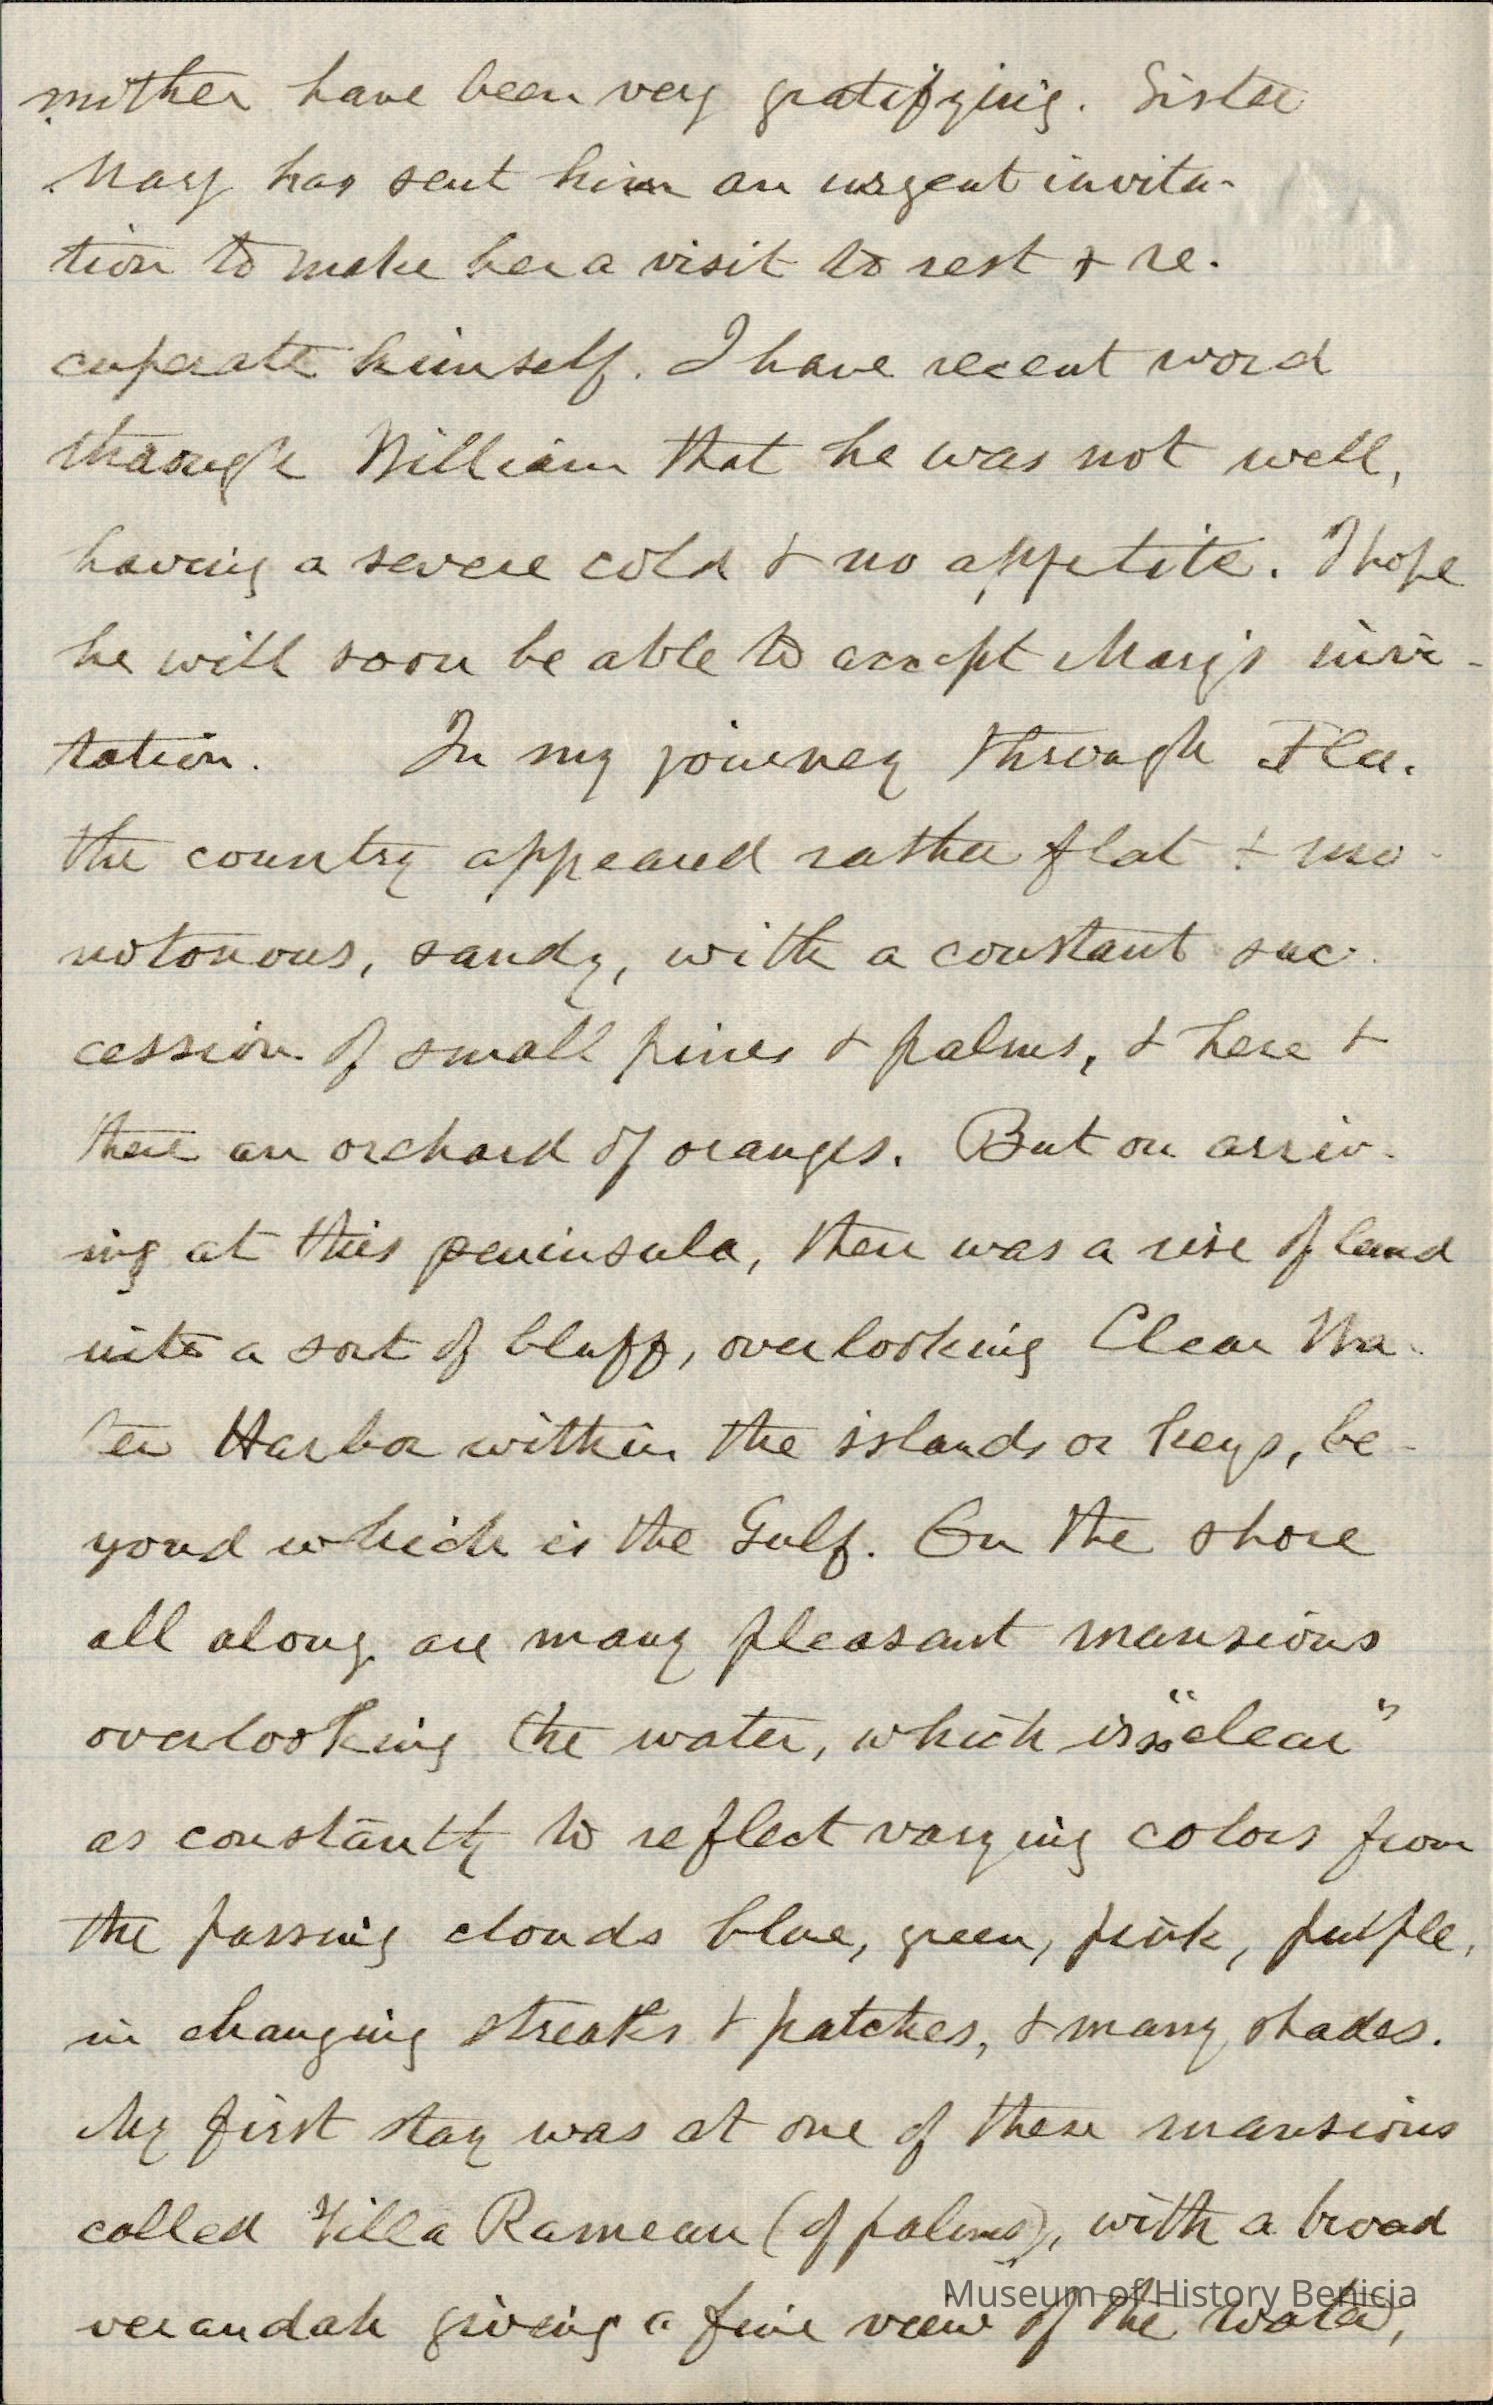 mother have been very gratifying. Sister
Mary has sent him an urgent invita-
tion to make her a visit to rest & re-
cuperate himself. I have recent word
through William that he was not well,
having a severe cold & no appetite. I hope
he will soon be able to accept Mary's invi-
tation. In my journey through Fla.
the country appeared rather flat & mo-
notonous, sandy, with a constant suc-
cession of small pines & palms, & here &
there an orchard of oranges. But on arriv-
ing at this peninsula, there was a rise of land
into a sort of bluff, overlooking Clear Wa-
ter Harbor within the islands or keys, be-
yond which is the Gulf. On the shore
all along are many pleasant mansions
overlooking the water, which is so "clear"
as constantly to reflect varying colors from
the passing clouds blue, green, pink, purple,
in changing streaks & patches, & many shades.
My first stay was at one of these mansions
called Villa Rameau (of palms), with a broad
verandah giving a fine view of the water,
Museum of History Benicia